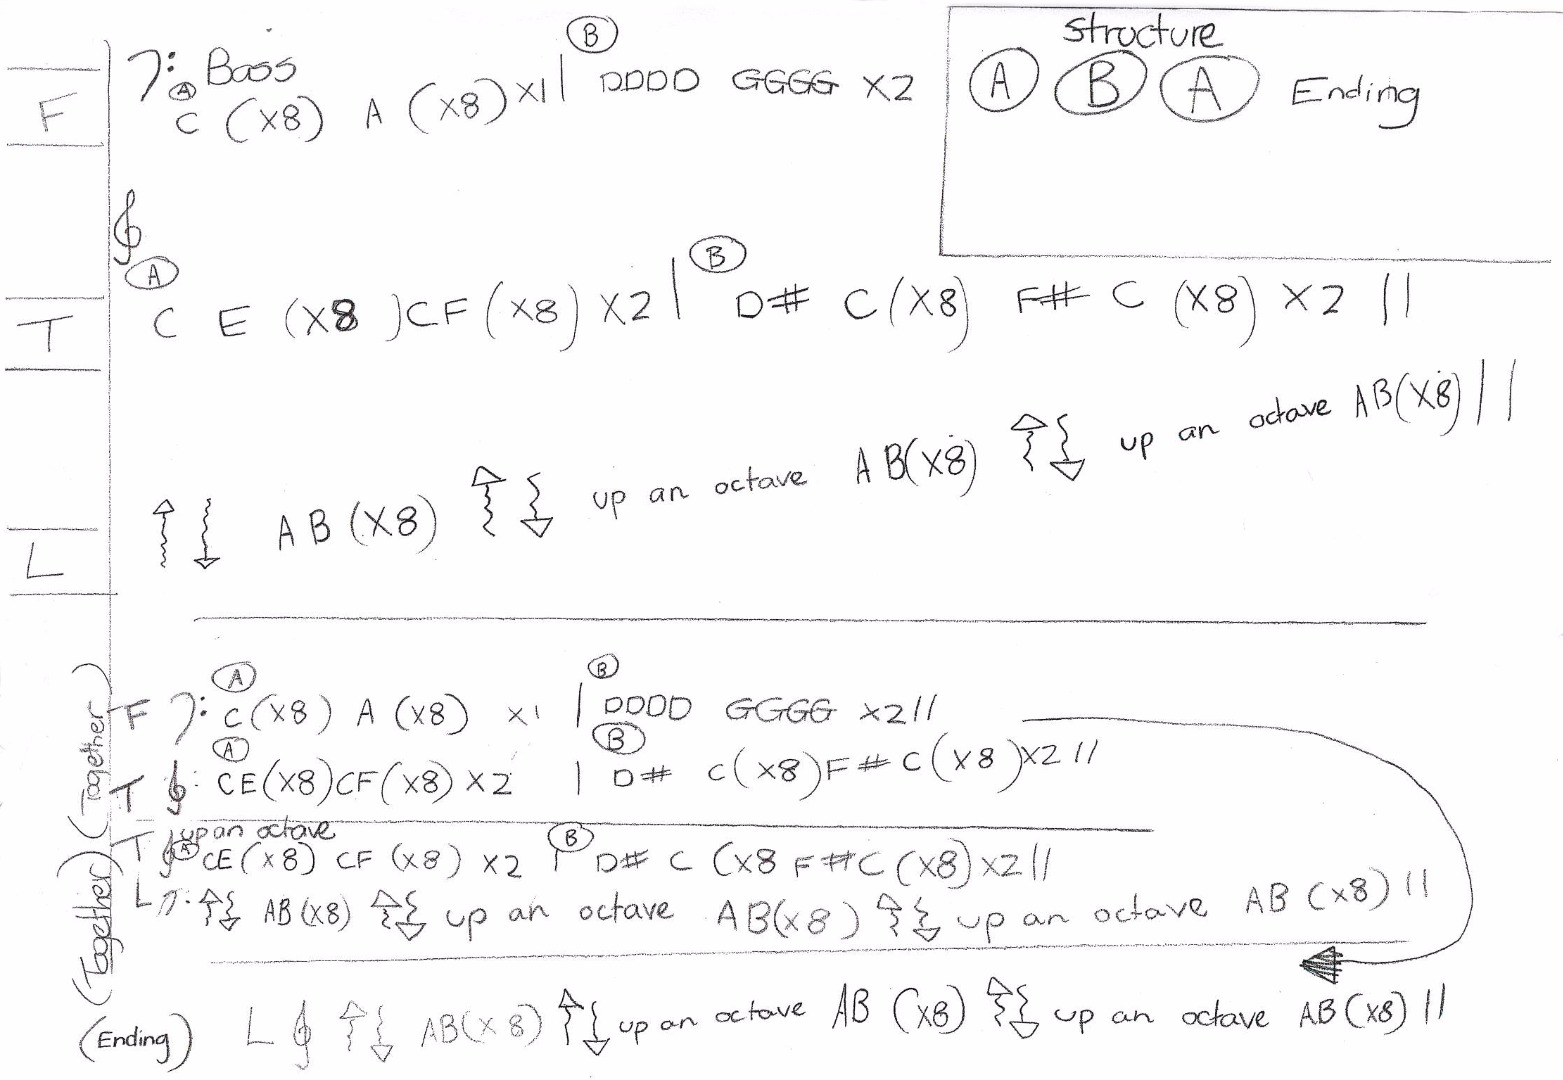 Structure
A B A Ending
F
Bass
A B
C (x8) A (x8) x1 | DDDD GGGG x2
A B
T C E (x8) CF (x8) x2 | D# C (x8) F# C (x8) x2 ||
L ↑↓ AB (x8) ↑↓ up an octave AB (x8) ↑↓ up an octave AB (x8) ||
(Together)
A B
F C (x8) A (x8) x1 | DDDD GGGG x2 ||
A B
T CE (x8) CF (x8) x2 | D# C (x8) F# C (x8) x2 ||
(Together)
up an octave
T A CE (x8) CF (x8) x2 | B D# C (x8 F# C (x8) x2 ||
L ↑↓ AB (x8) ↑↓ up an octave AB (x8) ↑↓ up an octave AB (x8) ||
(Ending) L ↑↓ AB (x8) ↑↓ up an octave AB (x8) ↑↓ up an octave AB (x8) ||